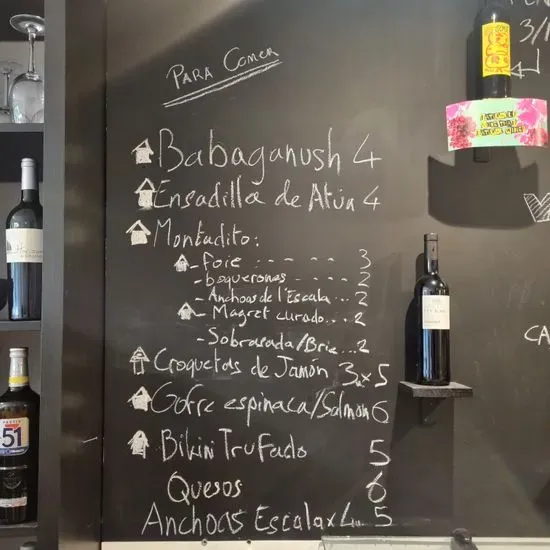 PARA COMER
Babaganush 4
Ensadilla de Atún 4
Montadito:
- foie ---- --- 3
- boquerones ---- 2
- Anchoas de l'Escala ... 2
- Magret curado... 2
- Sobrasada/Brie... 2
Croquetas de Jamón 3u x 5
Gofre espinaca/Salmón 6
Bikini Trufado 5
Quesos 6
Anchoas Escala x 4u. 5
51
3/
CA